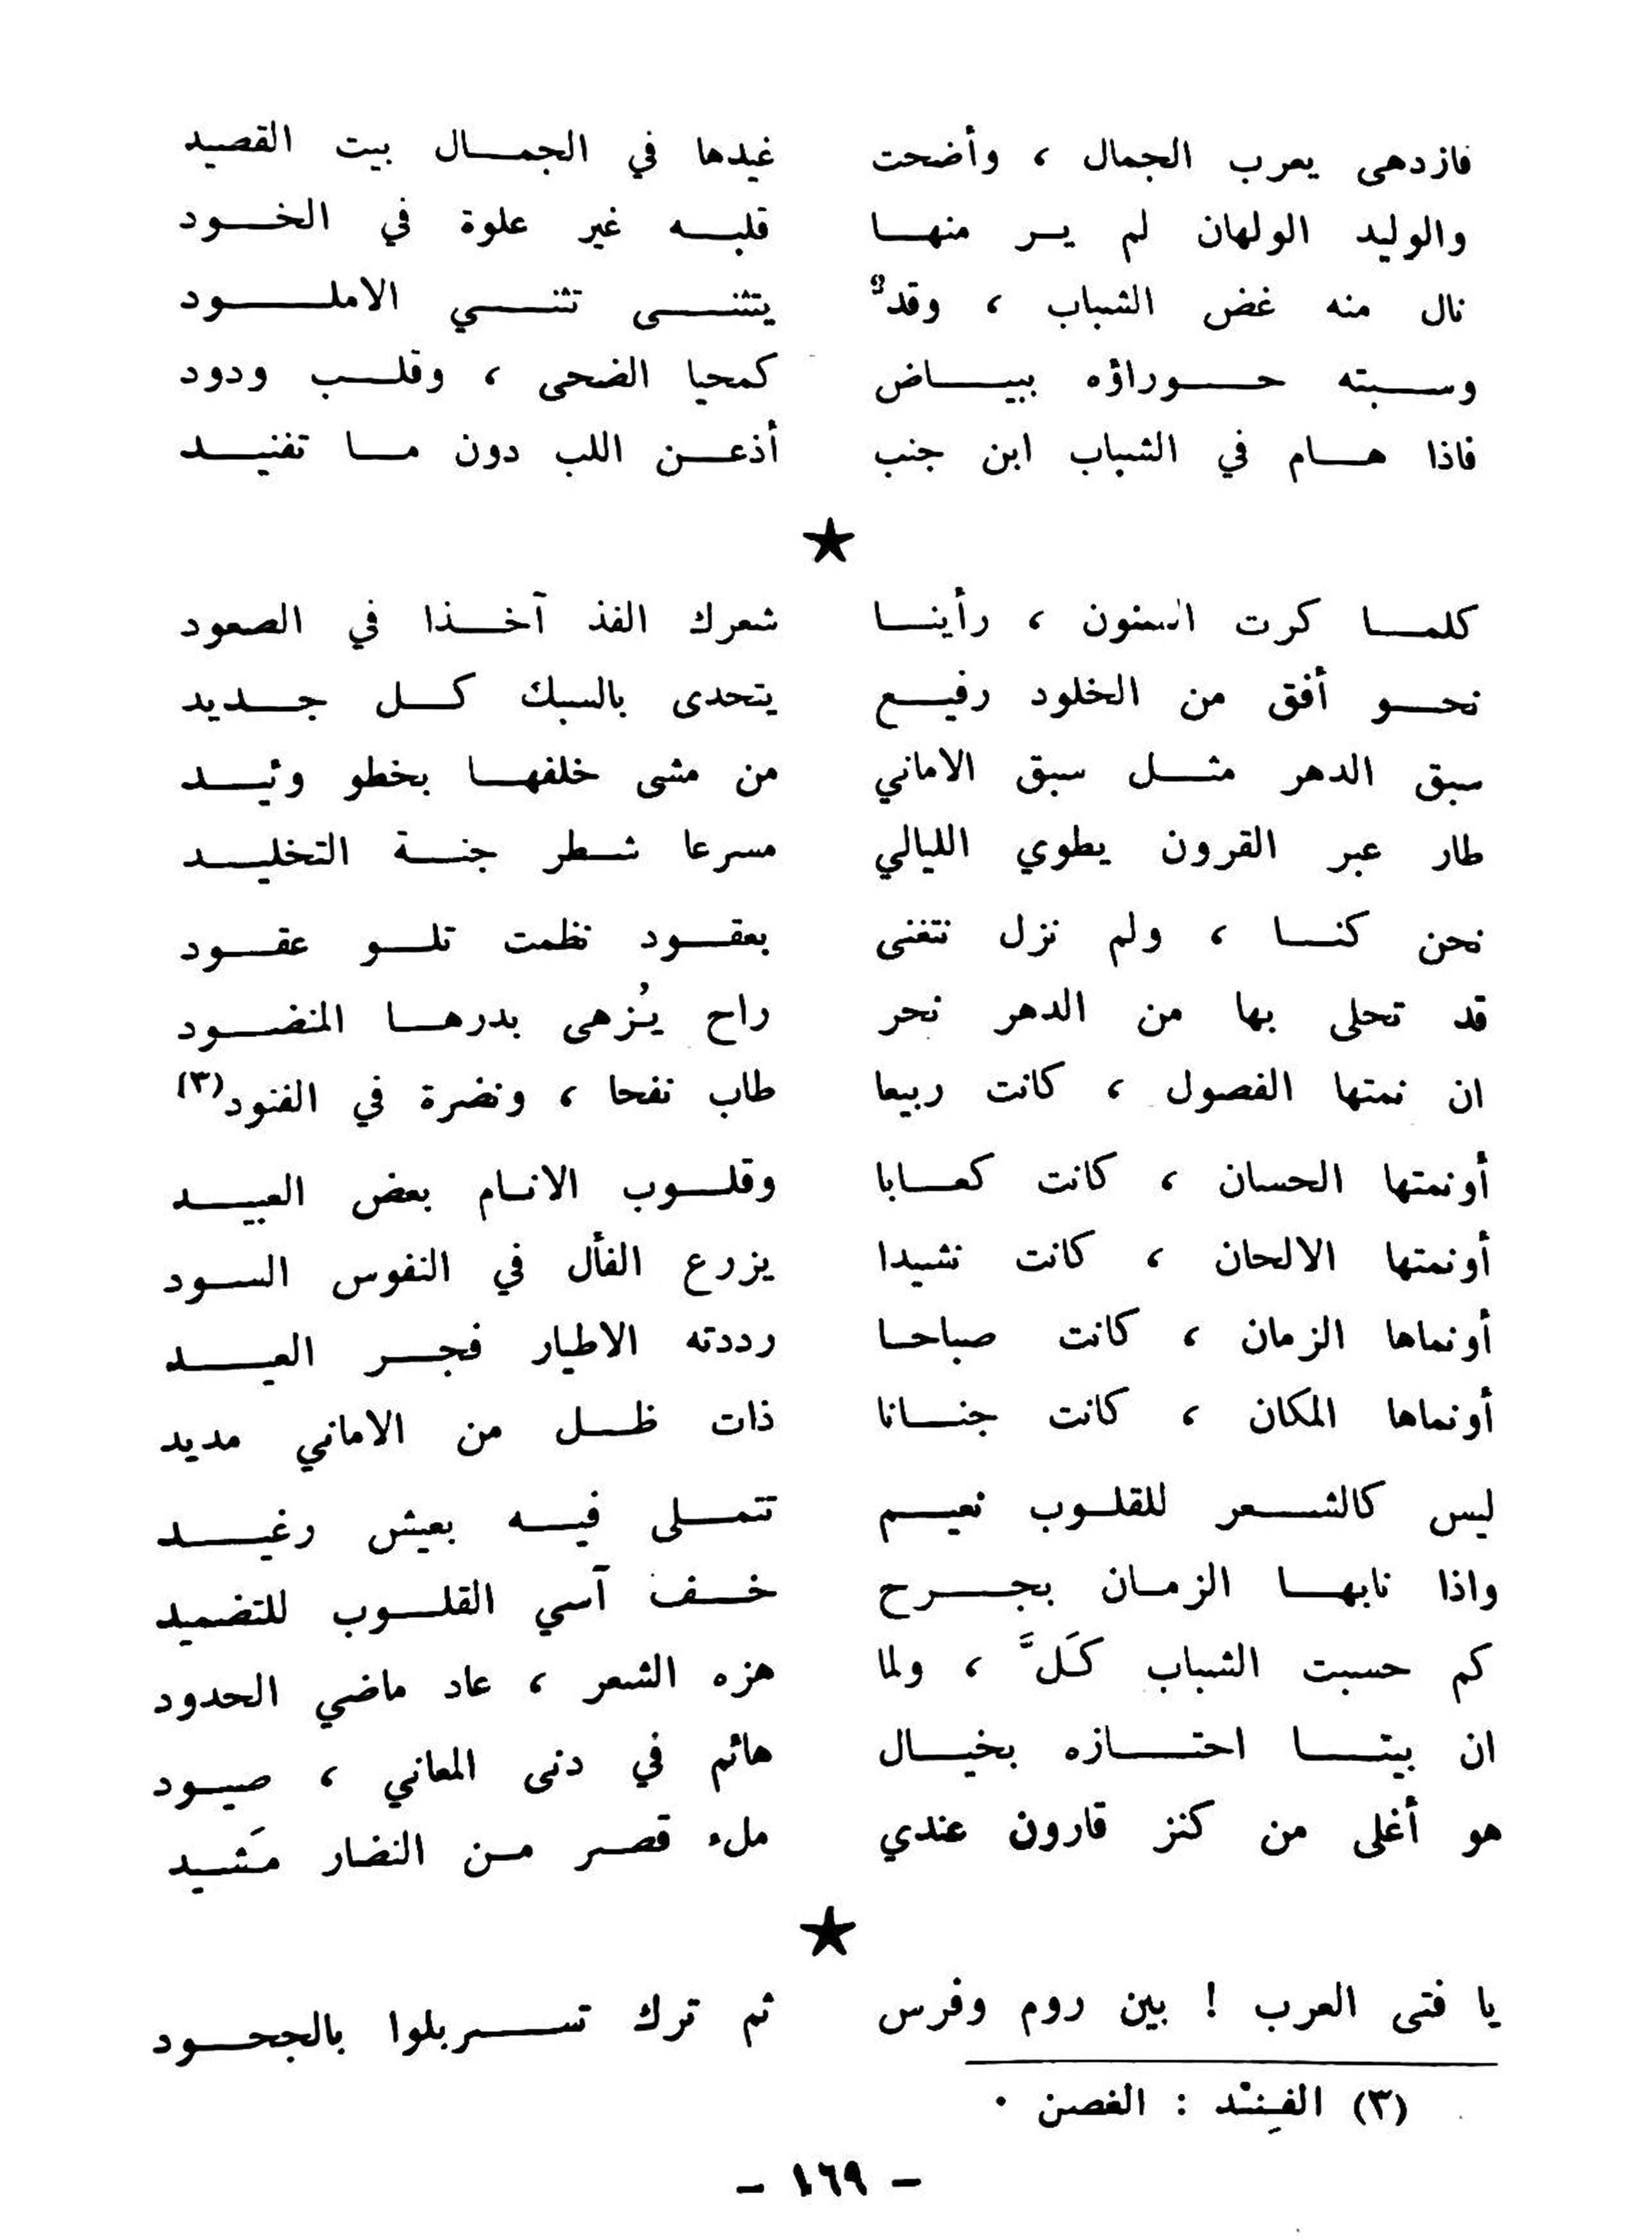 فازدهى يعرب الجمال ، وأضحت غيدها في الجمال بيت القصيد
والوليد الولهان لم ير منها قلبه غير علوة في الخود
نال منه غض الشباب ، وقدٌ يتثنى تثني الاملود
وسبته حوراؤه ببياض كمحيا الضحى ، وقلب ودود
فاذا هام في الشباب ابن جنب أذعن اللب دون ما تفنيد
★
كلما كرت السنون ، رأينا شعرك الفذ آخذا في الصعود
نحو أفق من الخلود رفيع يتحدى بالسبك كل جديد
سبق الدهر مثل سبق الاماني من مشى خلفها بخطو وئيد
طار عبر القرون يطوي الليالي مسرعا شطر جنة التخليد
نحن كنا ، ولم نزل نتغنى بعقود نظمت تلو عقود
قد تحلى بها من الدهر نحر راح يُزهى بدرها المنضود
ان نمتها الفصول ، كانت ربيعا طاب نفحا ، ونضرة في الفنود(٣)
أونمتها الحسان ، كانت كعابا وقلوب الانام بعض العبيد
أونمتها الالحان ، كانت نشيدا يزرع الفأل في النفوس السود
أونماها الزمان ، كانت صباحا رددته الاطيار فجر العيد
أونماها المكان ، كانت جنانا ذات ظل من الاماني مديد
ليس كالشعر للقلوب نعيم تتملى فيه بعيش رغيد
واذا نابها الزمان بجرح خف آسي القلوب للتضميد
كم حسبت الشباب كَلَّ ، ولما هزه الشعر ، عاد ماضي الحدود
ان بيتا احتازه بخيال هائم في دنى المعاني ، صيود
هو أغلى من كنز قارون عندي ملء قصر من النضار مَشيد
★
يا فتى العرب ! بين روم وفرس ثم ترك تسربلوا بالجحود
(٣) الفِنْد : الغصن ٠
- ١٦٩ -